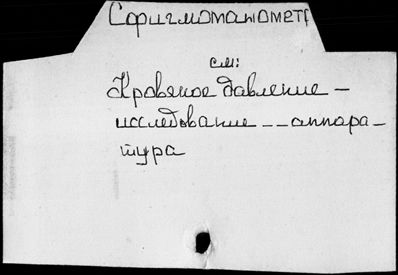 Сфигмоманометр
см:
Кровяное давление –
исследование – – аппара–
тура